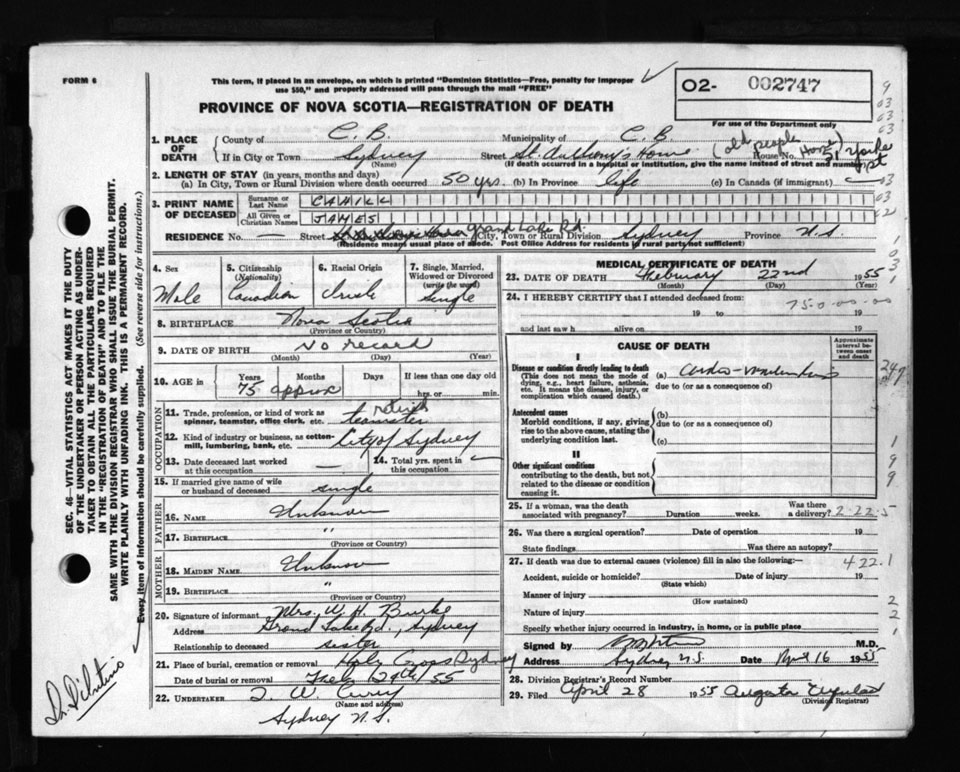 FORM 6
This form, if placed in an envelope, on which is printed "Dominion Statistics—Free, penalty for improper
use $50," and properly addressed will pass through the mail "FREE"
02- 002747
PROVINCE OF NOVA SCOTIA—REGISTRATION OF DEATH
For use of the Department only
1. PLACE OF DEATH
County of C. B. Municipality of C. B
If in City or Town Sydney (Name) Street St. Anthony's Home (old people Home) House No. 51 Yorke St
(If death occurred in hospital or institution, give the name instead of street and number)
2. LENGTH OF STAY (in years, months and days)
(a) In City, Town or Rural Division where death occurred 50 yrs. (b) In Province life (c) In Canada (if immigrant)
3. PRINT NAME OF DECEASED
Surname or Last Name CAHILL
All Given or Christian Names JAMES
RESIDENCE No. — Street Grand Lake Rd. City, Town or Rural Division Sydney Province N.S.
(Residence means usual place of abode. Post Office Address for residents in rural parts not sufficient)
4. Sex Male
5. Citizenship (Nationality) Canadian
6. Racial Origin Irish
7. Single, Married, Widowed or Divorced (write the word) single
8. BIRTHPLACE Nova Scotia
(Province or Country)
9. DATE OF BIRTH No record
(Month) (Day) (Year)
10. AGE in Years Months Days If less than one day old
75 approx hrs. or min.
OCCUPATION
11. Trade, profession, or kind of work as spinner, teamster, office clerk, etc. retired teamster
12. Kind of industry or business, as cotton-mill, lumbering, bank, etc. City of Sydney
13. Date deceased last worked at this occupation —
14. Total yrs. spent in this occupation
15. If married give name of wife or husband of deceased single
FATHER
16. NAME Unknown
17. BIRTHPLACE "
(Province or Country)
MOTHER
18. MAIDEN NAME Unknown
19. BIRTHPLACE "
(Province or Country)
20. Signature of informant Mrs. W. H. Burke
Address Grand Lake Rd., Sydney
Relationship to deceased sister
21. Place of burial, cremation or removal Holy Cross Sydney
Date of burial or removal Feb 24th/55
22. UNDERTAKER T. W. Curry
(Name and address)
Sydney N.S.
MEDICAL CERTIFICATE OF DEATH
23. DATE OF DEATH February 22nd 1955
(Month) (Day) (Year)
24. I HEREBY CERTIFY that I attended deceased from:
750-00-00
19 to 19
and last saw h alive on 19
CAUSE OF DEATH
Approximate interval between onset and death
I
Disease or condition directly leading to death
(This does not mean the mode of dying, e.g., heart failure, asthenia, etc. It means the disease, injury, or complication which caused death.)
(a)
due to (or as a consequence of)
Antecedent causes
Morbid conditions, if any, giving rise to the above cause, stating the underlying condition last.
(b)
due to (or as a consequence of)
(c)
II
Other significant conditions
contributing to the death, but not related to the disease or condition causing it.
25. If a woman, was the death associated with pregnancy? Duration weeks. Was there a delivery? 2-22-5
26. Was there a surgical operation? Date of operation 19
State findings Was there an autopsy?
27. If death was due to external causes (violence) fill in also the following:— 422.1
Accident, suicide or homicide? Date of injury 19
(State which)
Manner of injury
(How sustained)
Nature of injury
Specify whether injury occurred in industry, in home, or in public place
Signed by M.D.
Address Sydney N.S. Date April 16 1955
28. Division Registrar's Record Number
29. Filed April 28 1955 Augusta
(Division Registrar)
SEC. 46—VITAL STATISTICS ACT MAKES IT THE DUTY
OF THE UNDERTAKER OR PERSON ACTING AS UNDER-
TAKER TO OBTAIN ALL THE PARTICULARS REQUIRED
IN THE "REGISTRATION OF DEATH" AND TO FILE THE
SAME WITH THE DIVISION REGISTRAR WHO SHALL ISSUE THE BURIAL PERMIT.
WRITE PLAINLY WITH UNFADING INK. THIS IS A PERMANENT RECORD.
Every item of information should be carefully supplied. (See reverse side for instructions.)